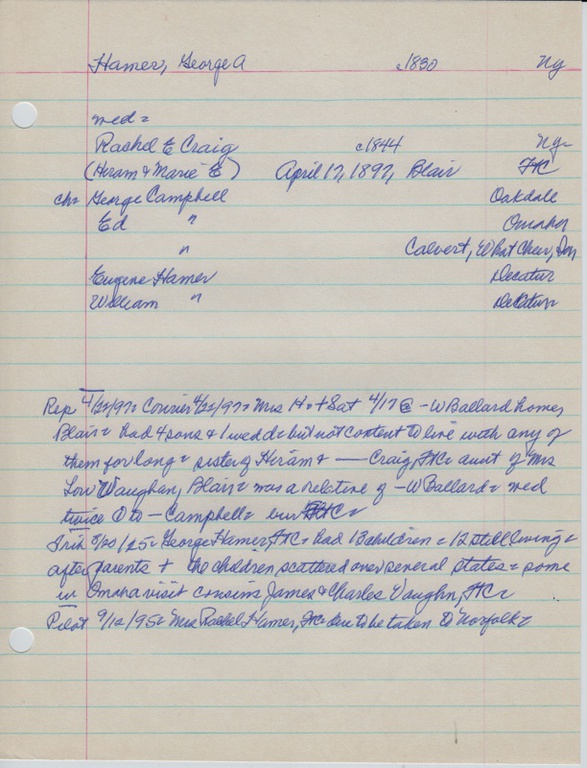 Hamer, George A c1830 Ny
med =
Rachel E Craig c1844 Ny-
(Hiram & Marie E) April 17, 1897, Blair FtC
ch= George Campbell Oakdale
Ed " Omaha
" Calvert, What Cheer, Iow
Eugene Hamer Decatur
William " Decatur
Rep 4/22/97= Courier 4/22/97= Mrs H. + Sat 4/17 @ - W Ballard home,
Blair= had 4 sons & 1 wedd= but not content to live with any of
them for long= sister of Hiram & — Craig, FtC= aunt of Mrs
Lou Vaughan, Blair= was a relative of - W Ballard= med
twice ① to - Campbell= bur FtC=
Trib 9/20/25= George Hamer, FtC= had 13 children = 12 still living=
after parents + the children scattered over several states= some
in Omaha visit cousins James & Charles Vaughn, FtC=
Pilot 9/12/95= Mrs Rachel Hamer, FtC= due to be taken to Norfolk=